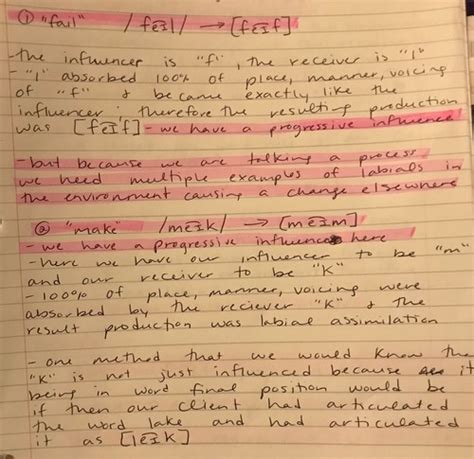 ① "fail" /fe͡ɪl/ → [fe͡ɪf]
-the influencer is "f", the receiver is "l"
- "l" absorbed 100% of place, manner, voicing
of "f" & became exactly like the
influencer; therefore the resulting production
was [fe͡ɪf] - we have a progressive influence
-but because we are talking a process
we need multiple examples of labials in
the environment causing a change elsewhere
② "make" /me͡ɪk/ → [me͡ɪm]
- we have a progressive influence here
- here we have our influencer to be "m"
and our receiver to be "K"
- 100% of place, manner, voicing were
absorbed by the reciever "K" & the
result production was labial assimilation
- one method that we would know the
"K" is not just influenced because it
being in word final position would be
if then our client had articulated
the word lake and had articulated
it as [le͡ɪk]